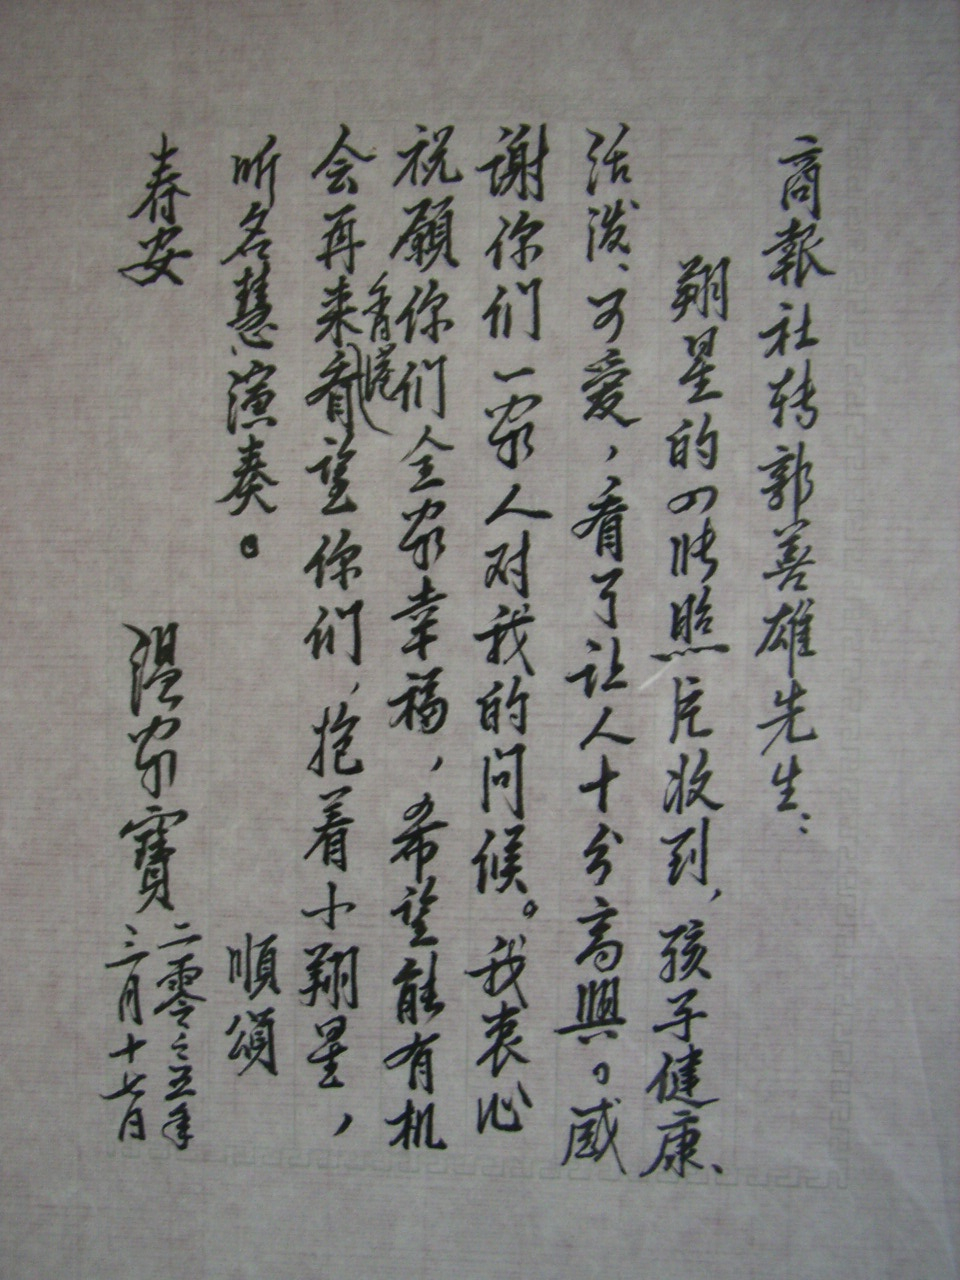 商報社转郭善雄先生：
翔星的四张照片收到，孩子健康、
活泼、可爱，看了让人十分高興。感
谢你们一家人对我的问候。我衷心
祝願你们全家幸福，希望能有机
会再来香港看望你们，抱着小翔星，
听名慧演奏。 順頌
春安
温家寶 二零零五年
三月十七日